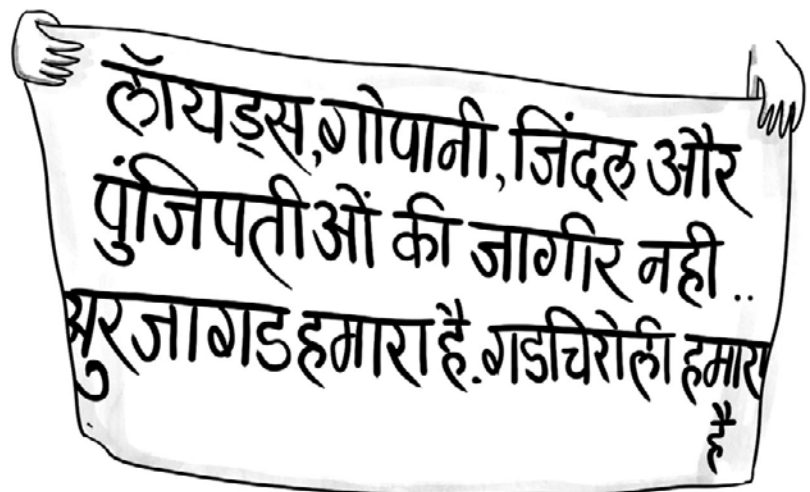 लॉयड्स,गोपानी,जिंदल और
पुंजिपतीओं की जागीर नही..
सुरजागड हमारा है.गडचिरोली हमारा
है